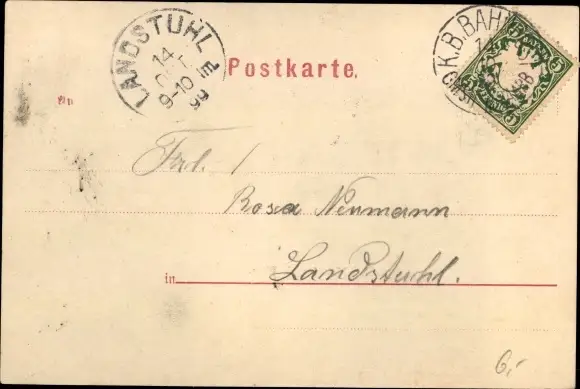 LANDSTUHL
14
9-10
99
Postkarte.
K.B.BAH
5
5
An
Frl.
Rosa Neumann
in Landstuhl.
6,-